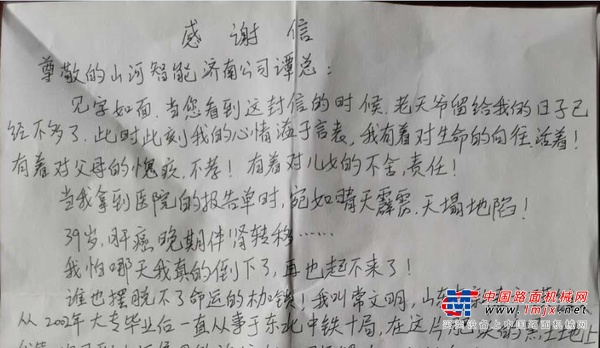 感谢信
尊敬的山河智能济南公司谭总:
见字如面,当您看到这封信的时候,老天爷留给我的日子已
经不多了,此时此刻我的心情溢于言表,我有着对生命的向往,活着!
有着对父母的愧疚,不孝!有着对儿女的不舍,责任!
当我拿到医院的报告单时,宛如晴天霹雳,天塌地陷!
39岁,肝癌晚期伴肾转移……
我怕哪天我真的倒下了,再也起不来了!
谁也摆脱不了命运的枷锁!我叫常文明,山东
从2002年大专毕业后一直从事于东北中铁十局,在这片
中国路面机械网
www.lmjx.net